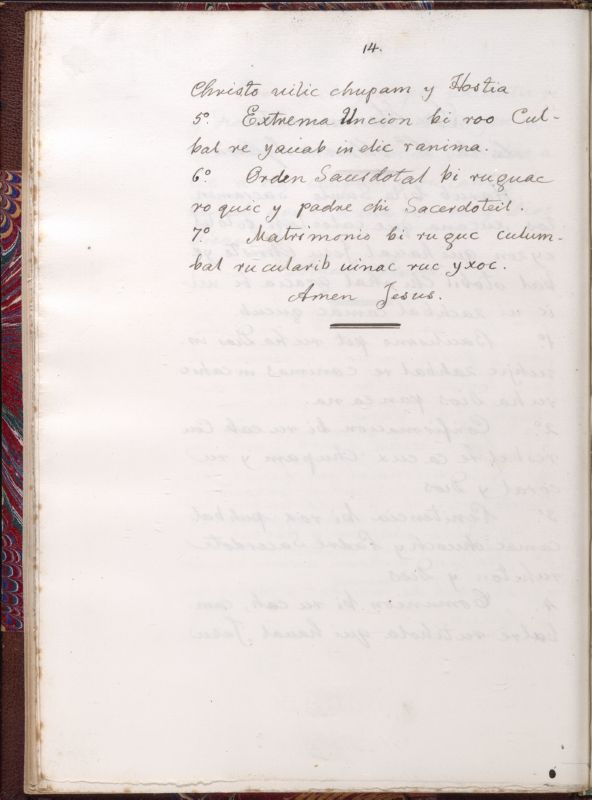 14.
Christo uilic chupam y Hostia
5º. Extrema Uncion bi roo Cul-
bal re yauab in elic ranima.
6º Orden Sacerdotal bi ruguac
ro quic y padre chi Sacerdoteil.
7º Matrimonio bi ru guc culum-
bal ru cularib uinac ruc yxoc.
Amen Jesus.